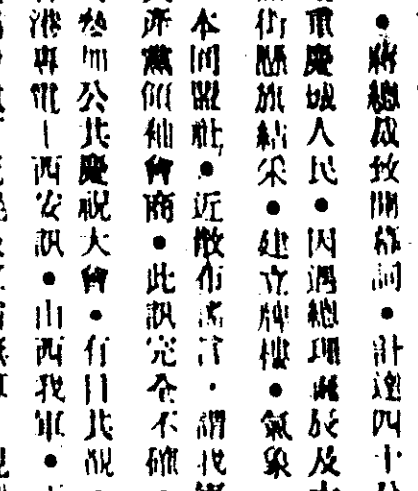 ●蔣總裁致開幕詞●計達四十
重慶城人民●因遇總理誕辰及
街懸旗結采●建立牌樓●氣象
本同盟社●近散佈謠言●謂我
黨領袖會商●此訊完全不確
參加公共慶祝大會●有目共覩
港專電—西安訊●山西我軍●